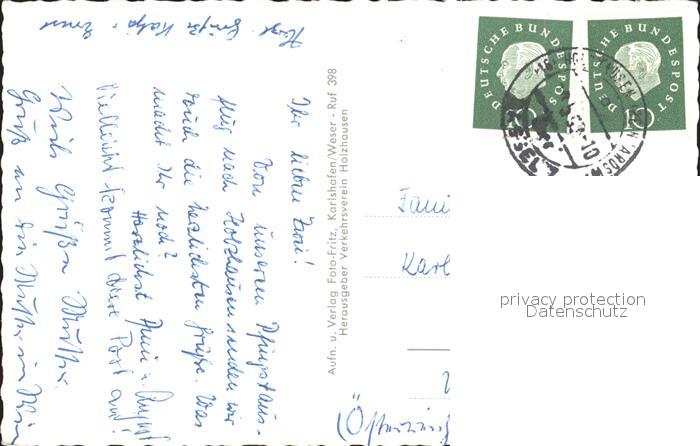 Ihr lieben Zwei!
Von unserem Pfingstaus-
flug nach Holzhausen senden wir
euch die herzlichsten Grüße. Was
macht Ihr noch?
Herzlichst Anni u. August
Vielleicht kommt diese Post an!
Viele Grüße Mutter.
Gruß an die Mutter in
Grüße Katja
Aufn. u. Verlag Foto-Fritz, Karlshafen/Weser - Ruf 398
Herausgeber Verkehrsverein Holzhausen
DEUTSCHE BUNDESPOST
10
DEUTSCHE BUNDESPOST
10
Fami
Karl
(Österreich
privacy protection
Datenschutz